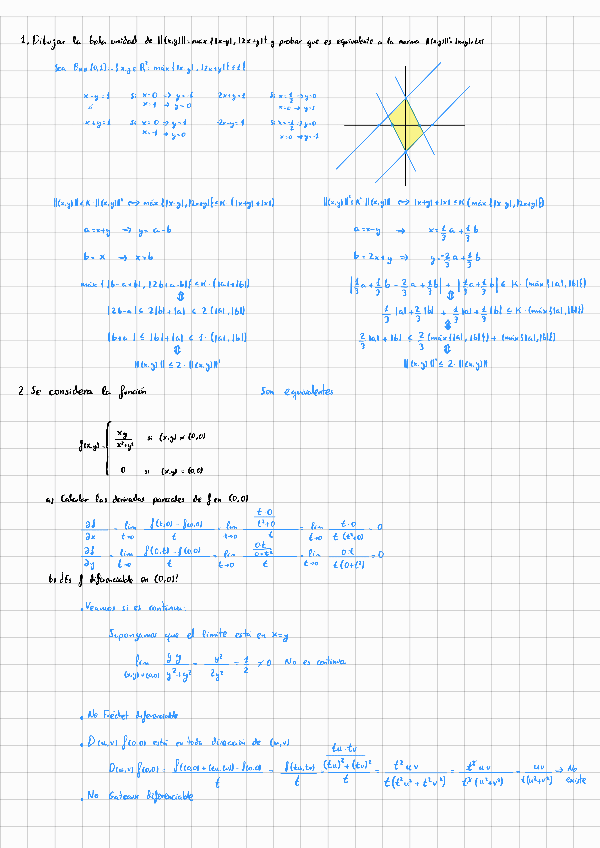 1. Dibujar la bola unidad de ||(x,y)|| = máx{|x-y|, |2x+y|} y probar que es equivalente a la norma ||(x,y)||' = |x+y|+|x|
Sea B = {x,y ∈ R²: máx{|x-y|, |2x+y|} ≤ 1}
x-y=1 Si x=0 → y=
x=1 → y=0
2x+y=1 Si x=1/2 → y=0
x=0 → y=1
x+y=1 Si x=0 → y=1
x=-1 → y=0
-2x-y=1 Si x=-1/2 → y=0
x=0 → y=-1
||(x,y)|| ≤ K · ||(x,y)||' ⟺ máx{|x-y|, |2x+y|} ≤ K (|x+y|+|x|)
a=x+y → y=a-b
b=x → x=b
máx{|b-a+b|, |2b+a-b|} ≤ K · (|a|+|b|)
⇕
|2b-a| ≤ 2|b|+|a| ≤ 2(|a|,|b|)
|b+a| ≤ |b|+|a| ≤ 1·(|a|,|b|)
⇕
||(x,y)|| ≤ 2·||(x,y)||'
||(x,y)||' ≤ K' ||(x,y)|| ⟺ |x+y|+|x| ≤ K (máx{|x-y|, |2x+y|})
a=x-y → x=1/3 a + 1/3 b
b=2x+y ⟹ y=-2/3 a + 1/3 b
|1/3 a + 1/3 b - 2/3 a + 1/3 b| + |1/3 a + 1/3 b| ≤ K·(máx{|a|,|b|})
⇕
1/3 |a| + 2/3 |b| + 1/3 |a| + 1/3 |b| ≤ K·(máx{|a|,|b|})
⇕
2/3 |a| + |b| ≤ 2/3 (máx{|a|,|b|}) + (máx{|a|,|b|})
⇕
||(x,y)||' ≤ 2·||(x,y)||
Son equivalentes
2. Se considera la función
f(x,y) = { xy/(x²+y²) si (x,y) ≠ (0,0)
0 si (x,y) = (0,0)
a) Calcular las derivadas parciales de f en (0,0)
∂f/∂x = lim t→0 (f(t,0) - f(0,0))/t = lim t→0 (t·0/(t²+0))/t = lim t→0 t·0/(t(t²+0)) = 0
∂f/∂y = lim t→0 (f(0,t) - f(0,0))/t = lim t→0 (0t/(0+t²))/t = lim t→0 0t/(t(0+t²)) = 0
b) ¿Es f diferenciable en (0,0)?
• Veamos si es continua:
Supongamos que el límite esta en x=y
lim (x,y)→(0,0) y y/(y²+y²) = y²/2y² = 1/2 ≠ 0 No es continua
• No Fréchet diferenciable
• D(u,v) f(0,0) está en toda dirección de (u,v)
D(u,v) f(0,0) = (f((0,0)+(tu,tv)) - f(0,0))/t = f(tu,tv)/t = (tu·tv/((tu)²+(tv)²))/t = t²uv/(t(t²u²+t²v²)) = t²uv/(t³(u²+v²)) = uv/(t(u²+v²)) → No existe
• No Gateaux diferenciable